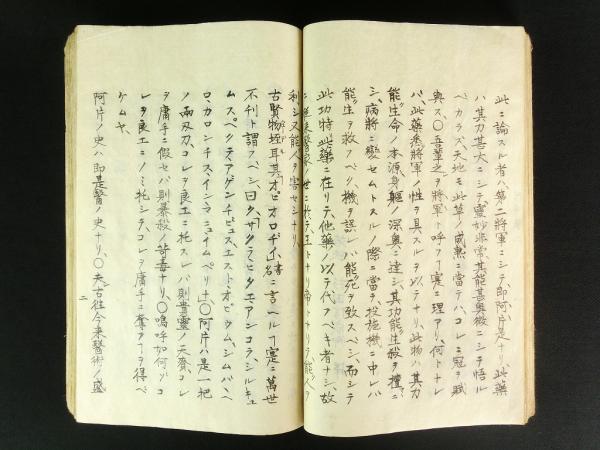 此ニ論スル者ハ第二將軍ニシテ即阿片是ナリ、此藥
ハ其力甚大ニシテ靈妙非常、其能甚奥微ニシテ悟ル
ベカラズ、天地モ此草ノ成熟ニ當テハ、コレニ冠ヲ賦
與ス、○吾輩之ヲ將軍ト呼フ丁寔ニ理アリ、何トナレ
バ、此藥悉將軍ノ性ヲ具スルヲ以テナリ、此物ハ其力
能生命ノ本源身軀ノ深奥ニ達シ、其功能生殺ヲ擅ニ
シ、病將ニ變セムトスルノ際ニ當テ、投施機ニ中レハ
能生ヲ救フベク、機ヲ誤レハ能死ヲ致スベシ、而シテ
此功特此藥ニ在リテ、他藥ノ以テ代フベキ者ナシ、故
ニ従来醫家ノ世ニ於テ、王トナリ帝トナリテ、能人ヲ
利シ又能人ヲ害セシナリ、
古賢物垤耳其オピオロギイ書名ニ言ヘル丁寔ニ萬世
不刊ト謂フベシ、曰ク、サクラ、ヒタエ、アンコラ、シルキュ
ムスペクテ、アゲンチビュス、エスト、オピウム、シムハハヘ
ロ、カロンチス、イン、マニュイムペリナ、○阿片ハ是一把
ノ両刃刀、コレヲ良工ニ托スレバ則貴靈ノ天賚、コレ
ヲ庸手ニ假セバ則暴殺ノ苛毒ナリ、○嗚呼如何ガコ
レヲ良工ニノミ托シテ、コレヲ庸手ニ奪フ丁ヲ得ベ
ケムヤ、
阿片ノ史ハ即是醫ノ史ナリ、○夫古往今来醫術ノ盛
二